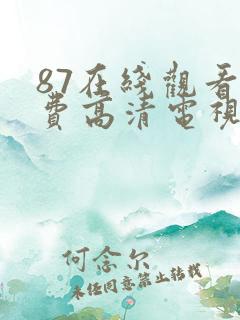 87在綫觀看
費高清電視
何念尔
未经同意禁止转载